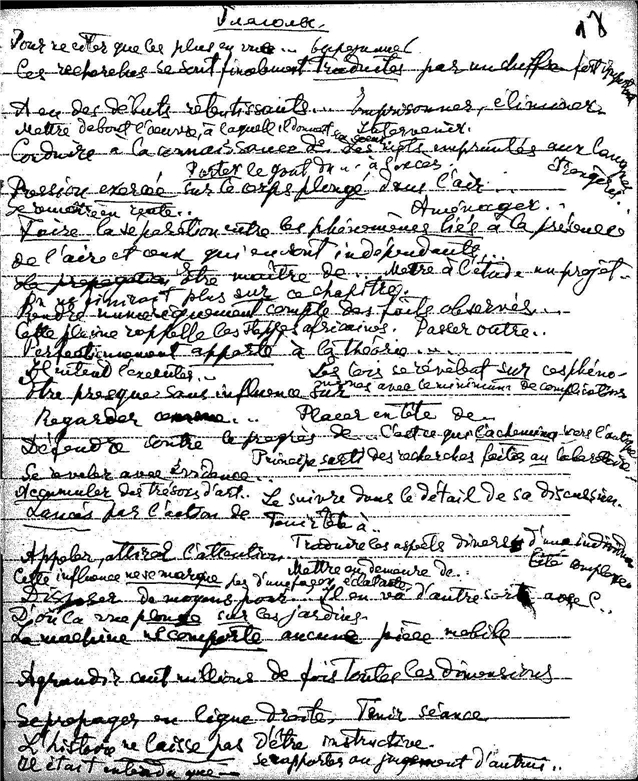 Глаголы.
18
Pour ne citer que les plus en vue...
Ces recherches se sont finalement traduites par un chiffre fort important
A eu des débuts retentissants... Emprisonner, éliminer.
Mettre debout l'œuvre, à laquelle il donnait ses soins Intervenir.
Conduire a la connaissance de. Des mots empruntés aux langues
Porter le gout du .. à l'excès. étrangères.
Pression exercée sur le corps plongé dans l'air
Le remettre en route.. Aménager..
Faire la separation entre les phénomènes liés à la présence
de l'air et ceux qui en sont indépendants...
La propagation Etre maître de... Mettre à l'étude un projet.
On ne finirait plus sur ce chapitre.
Rendre numériquement compte des faits observés...
Cette plaine rappelle les steppes africaines. Passer outre..
Perfectionnement apporté à la théorie...
Il vient l'executer.. Les lois se révèlent sur ces phéno-
Etre presque sans influence sur mènes avec le minimum de complications
Regarder comme... Placer en tête de...
Défendre contre le progrès de... C'est ce qui l'achemina vers l'autre
Principe sorti des recherches faites au laboratoire
Se réveler avec évidence..
Accumuler des trésors d'art. Le suivre dans le détail de sa discussion.
Lancés par l'action de Tenir tête à..
Traduire les aspects divers d'une individua
lité complexe
Appeler, attirer l'attention. Mettre en demeure de..
Cette influence ne se marque pas d'une façon éclatante
Disposer de moyens pour... Il en va d'autre sorte avec l..
D'où la vue plonge sur les jardins.
La machine ne comporte aucune pièce mobile
Agrandir cent millions de fois toutes les dimensions
Se propager en ligne droite, Tenir séance
L'histoire ne laisse pas d'être instructive.
Il était entendu que — se rapporter au jugement d'autrui..